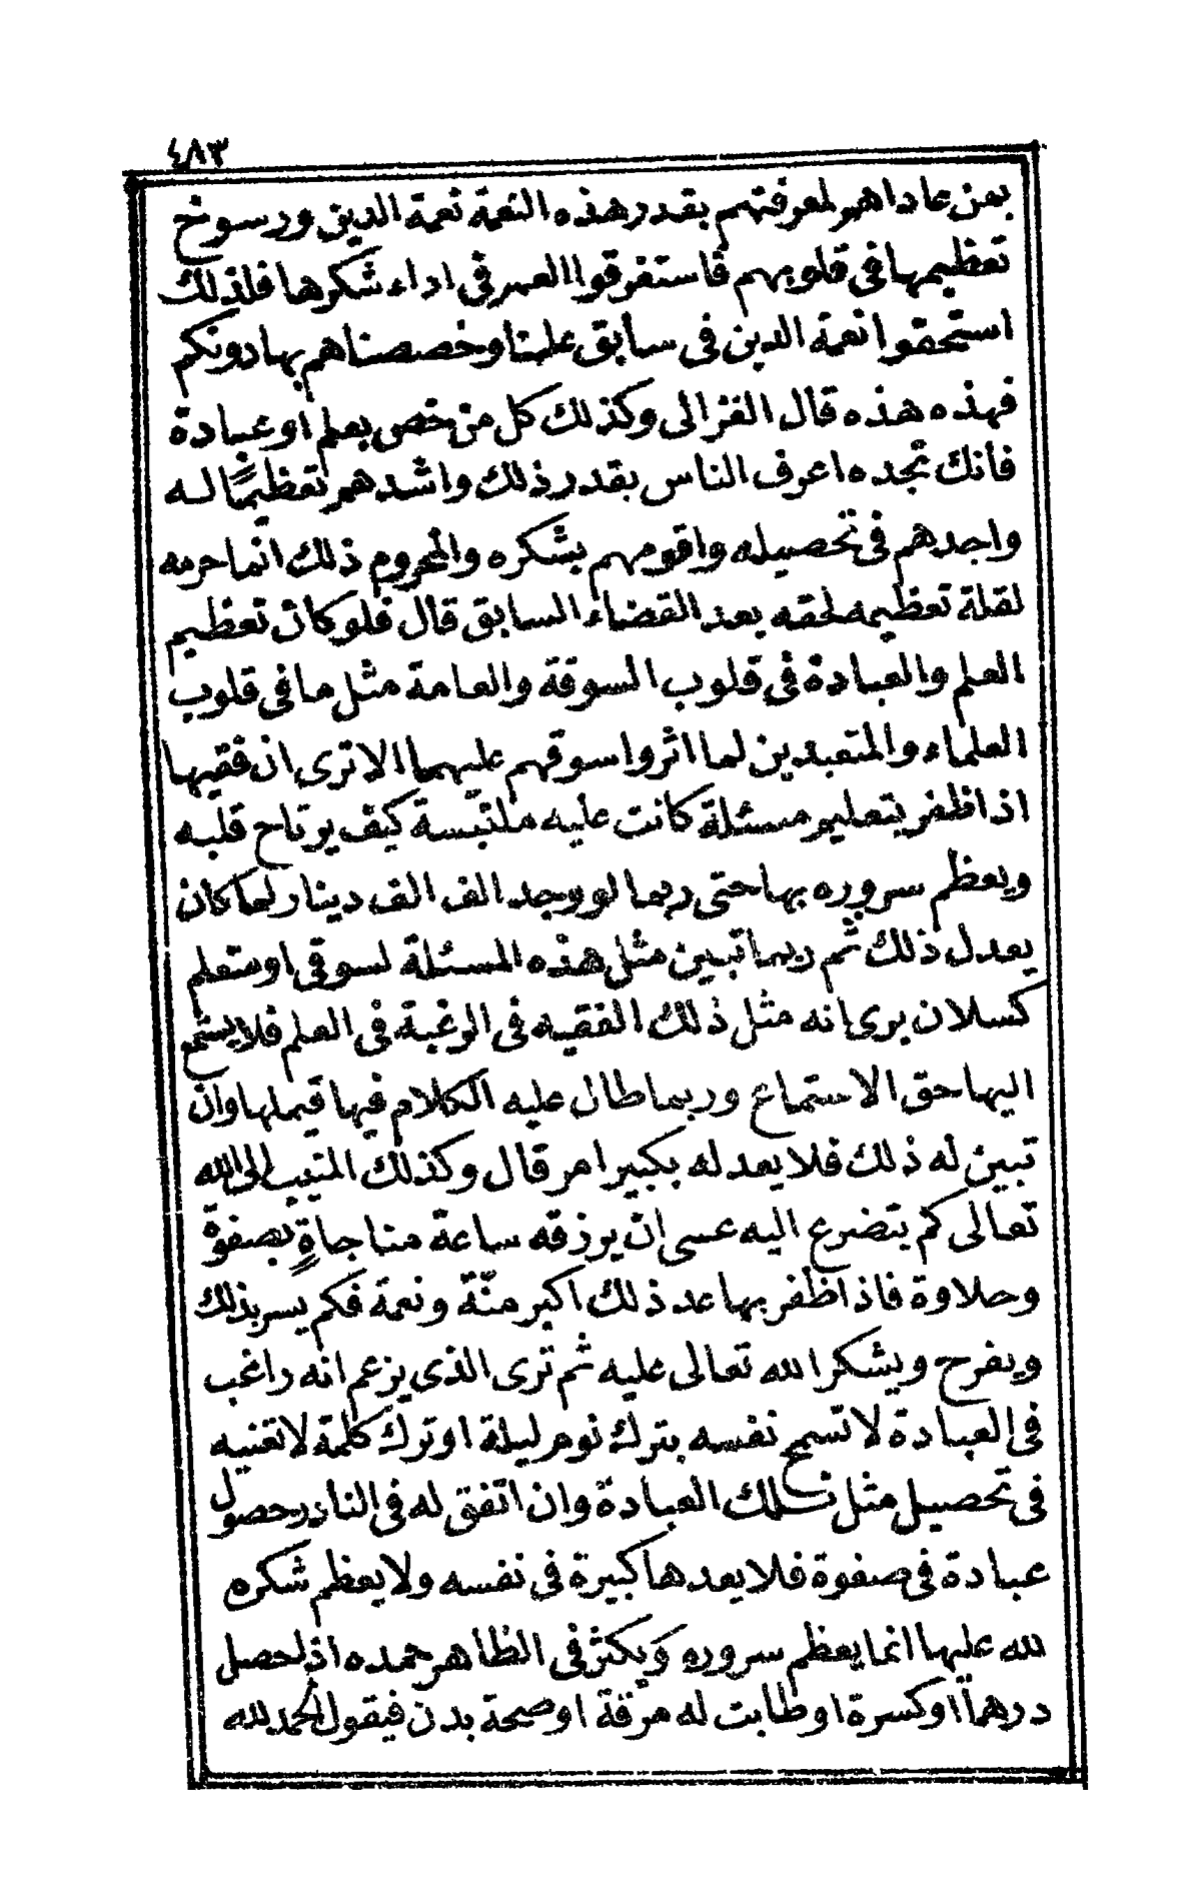 ٤٨٣
بمن عاداهم لمعرفتهم بقدر هذه النعمة نعمة الدين ورسوخ
تعظيمها فى قلوبهم فاستفرقوا العمر فى اداء شكرها فلذلك
استحقوا نعمة الدين فى سابق علمنا وخصصناهم بها دونكم
فهذه هذه قال الغزالى وكذلك كل من خص بعلم او عبادة
فأنك تجده اعرف الناس بقدر ذلك واشدهم تعظيمًا له
واجدهم فى تحصيله واقومهم بشكره والمحروم ذلك انما حرمه
لقلة تعظيمه لحقه بعد القضاء السابق قال فلو كان تعظيم
العلم والعبادة فى قلوب السوقة والعامة مثل ما فى قلوب
العلماء والمتعبدين لما اثروا سوقهم عليهما الا ترى ان فقيها
اذا ظفر بتعليم مسئلة كانت عليه ملتبسة كيف يرتاح قلبه
ويعظم سروره بها حتى ربما لو وجد الف الف دينار لما كان
يعدل ذلك ثم ربما تبين مثل هذه المسئلة لسوقى او متعلم
كسلان يرى انه مثل ذلك الفقيه فى الرغبة فى العلم فلا يستمع
اليها حق الاستماع وربما طال عليه الكلام فيها فيملها وان
تبين له ذلك فلا يعد له بكبير امر قال وكذلك المنيب الى الله
تعالى كم يتضرع اليه عسى ان يرزقه ساعة مناجاةٍ بصفوة
وحلاوة فاذا ظفر بها عد ذلك اكبر منّة ونعمة فكم يسر بذلك
ويفرح ويشكر الله تعالى عليه ثم ترى الذى يزعم انه راغب
فى العبادة لا تسمح نفسه بترك نوم ليلة او ترك كلمة لا تعنيه
فى تحصيل مثل تلك العبادة وان اتفق له فى النادر حصول
عبادة فى صفوة فلا يعدها كبيرة فى نفسه ولا يعظم شكره
لله عليها انما يعظم سروره ويكثر فى الظاهر حمده اذا حصل
درهمًا او كسرة او طابت له مرقة او صحة بدن فيقول الحمد لله